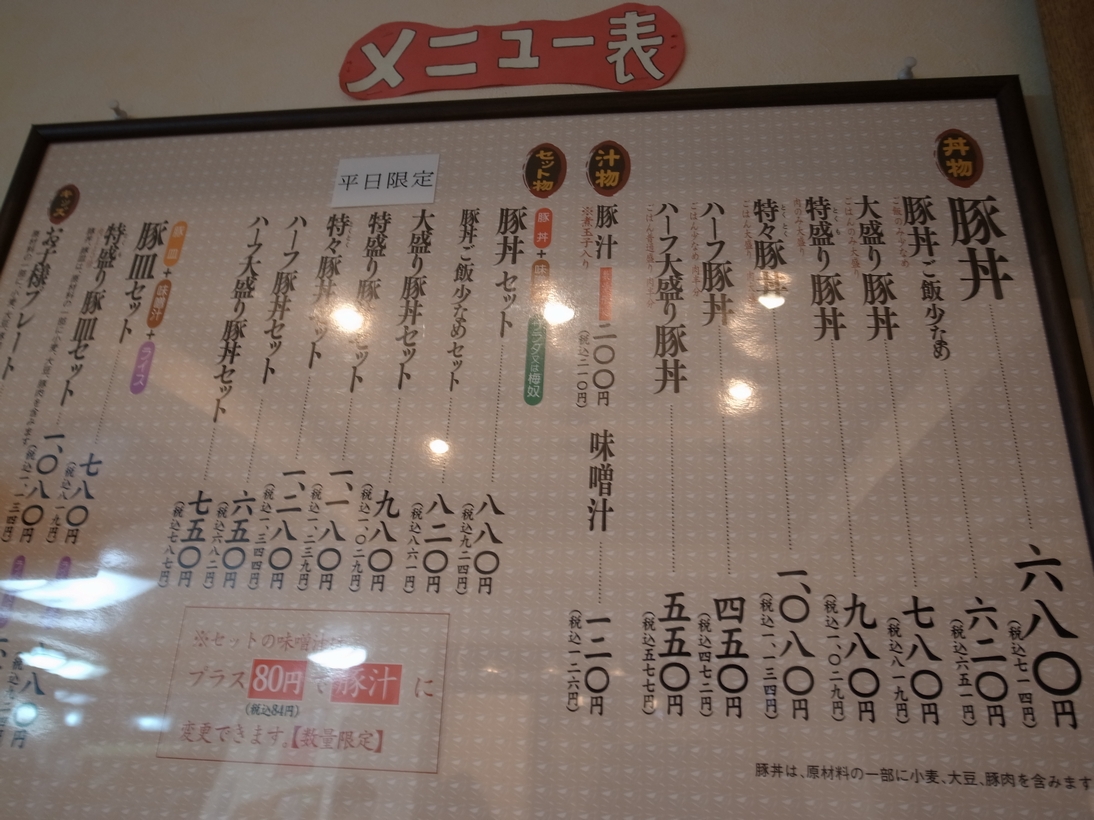 メニュー表
丼物
豚丼 六八〇円
(税込七一四円)
豚丼ご飯少なめ 六二〇円
(税込六五一円)
大盛り豚丼 七八〇円
(税込八一九円)
特盛り豚丼 九八〇円
(税込一、〇二九円)
特々豚丼 一、〇八〇円
(税込一、一三四円)
ハーフ豚丼 四五〇円
(税込四七二円)
ハーフ大盛り豚丼 五五〇円
(税込五七七円)
汁物
豚汁 二〇〇円
※煮玉子入り
(税込二一〇円)
味噌汁 一二〇円
(税込一二六円)
セット物
豚丼+味
サラダ又は梅奴
平日限定
豚丼セット 八八〇円
(税込九二四円)
豚丼ご飯少なめセット 八二〇円
(税込八六一円)
大盛り豚丼セット 九八〇円
(税込一、〇二九円)
特盛り豚 セット 一、一八〇円
(税込一、二三九円)
特々豚丼 ット 一、二八〇円
(税込一、三四四円)
ハーフ豚丼セット 六五〇円
(税込六八二円)
ハーフ大盛り豚丼セット 七五〇円
(税込七八七円)
豚皿+味噌汁+ライス
豚皿セット 七八〇円
(税込八一九円)
特盛り豚皿セット 一、〇八〇円
(税込一、一三四円)
キッズ
お子様プレート
※セットの味噌汁は
プラス80円で豚汁に
(税込84円)
変更できます。【数量限定】
豚丼は、原材料の一部に小麦、大豆、豚肉を含みます